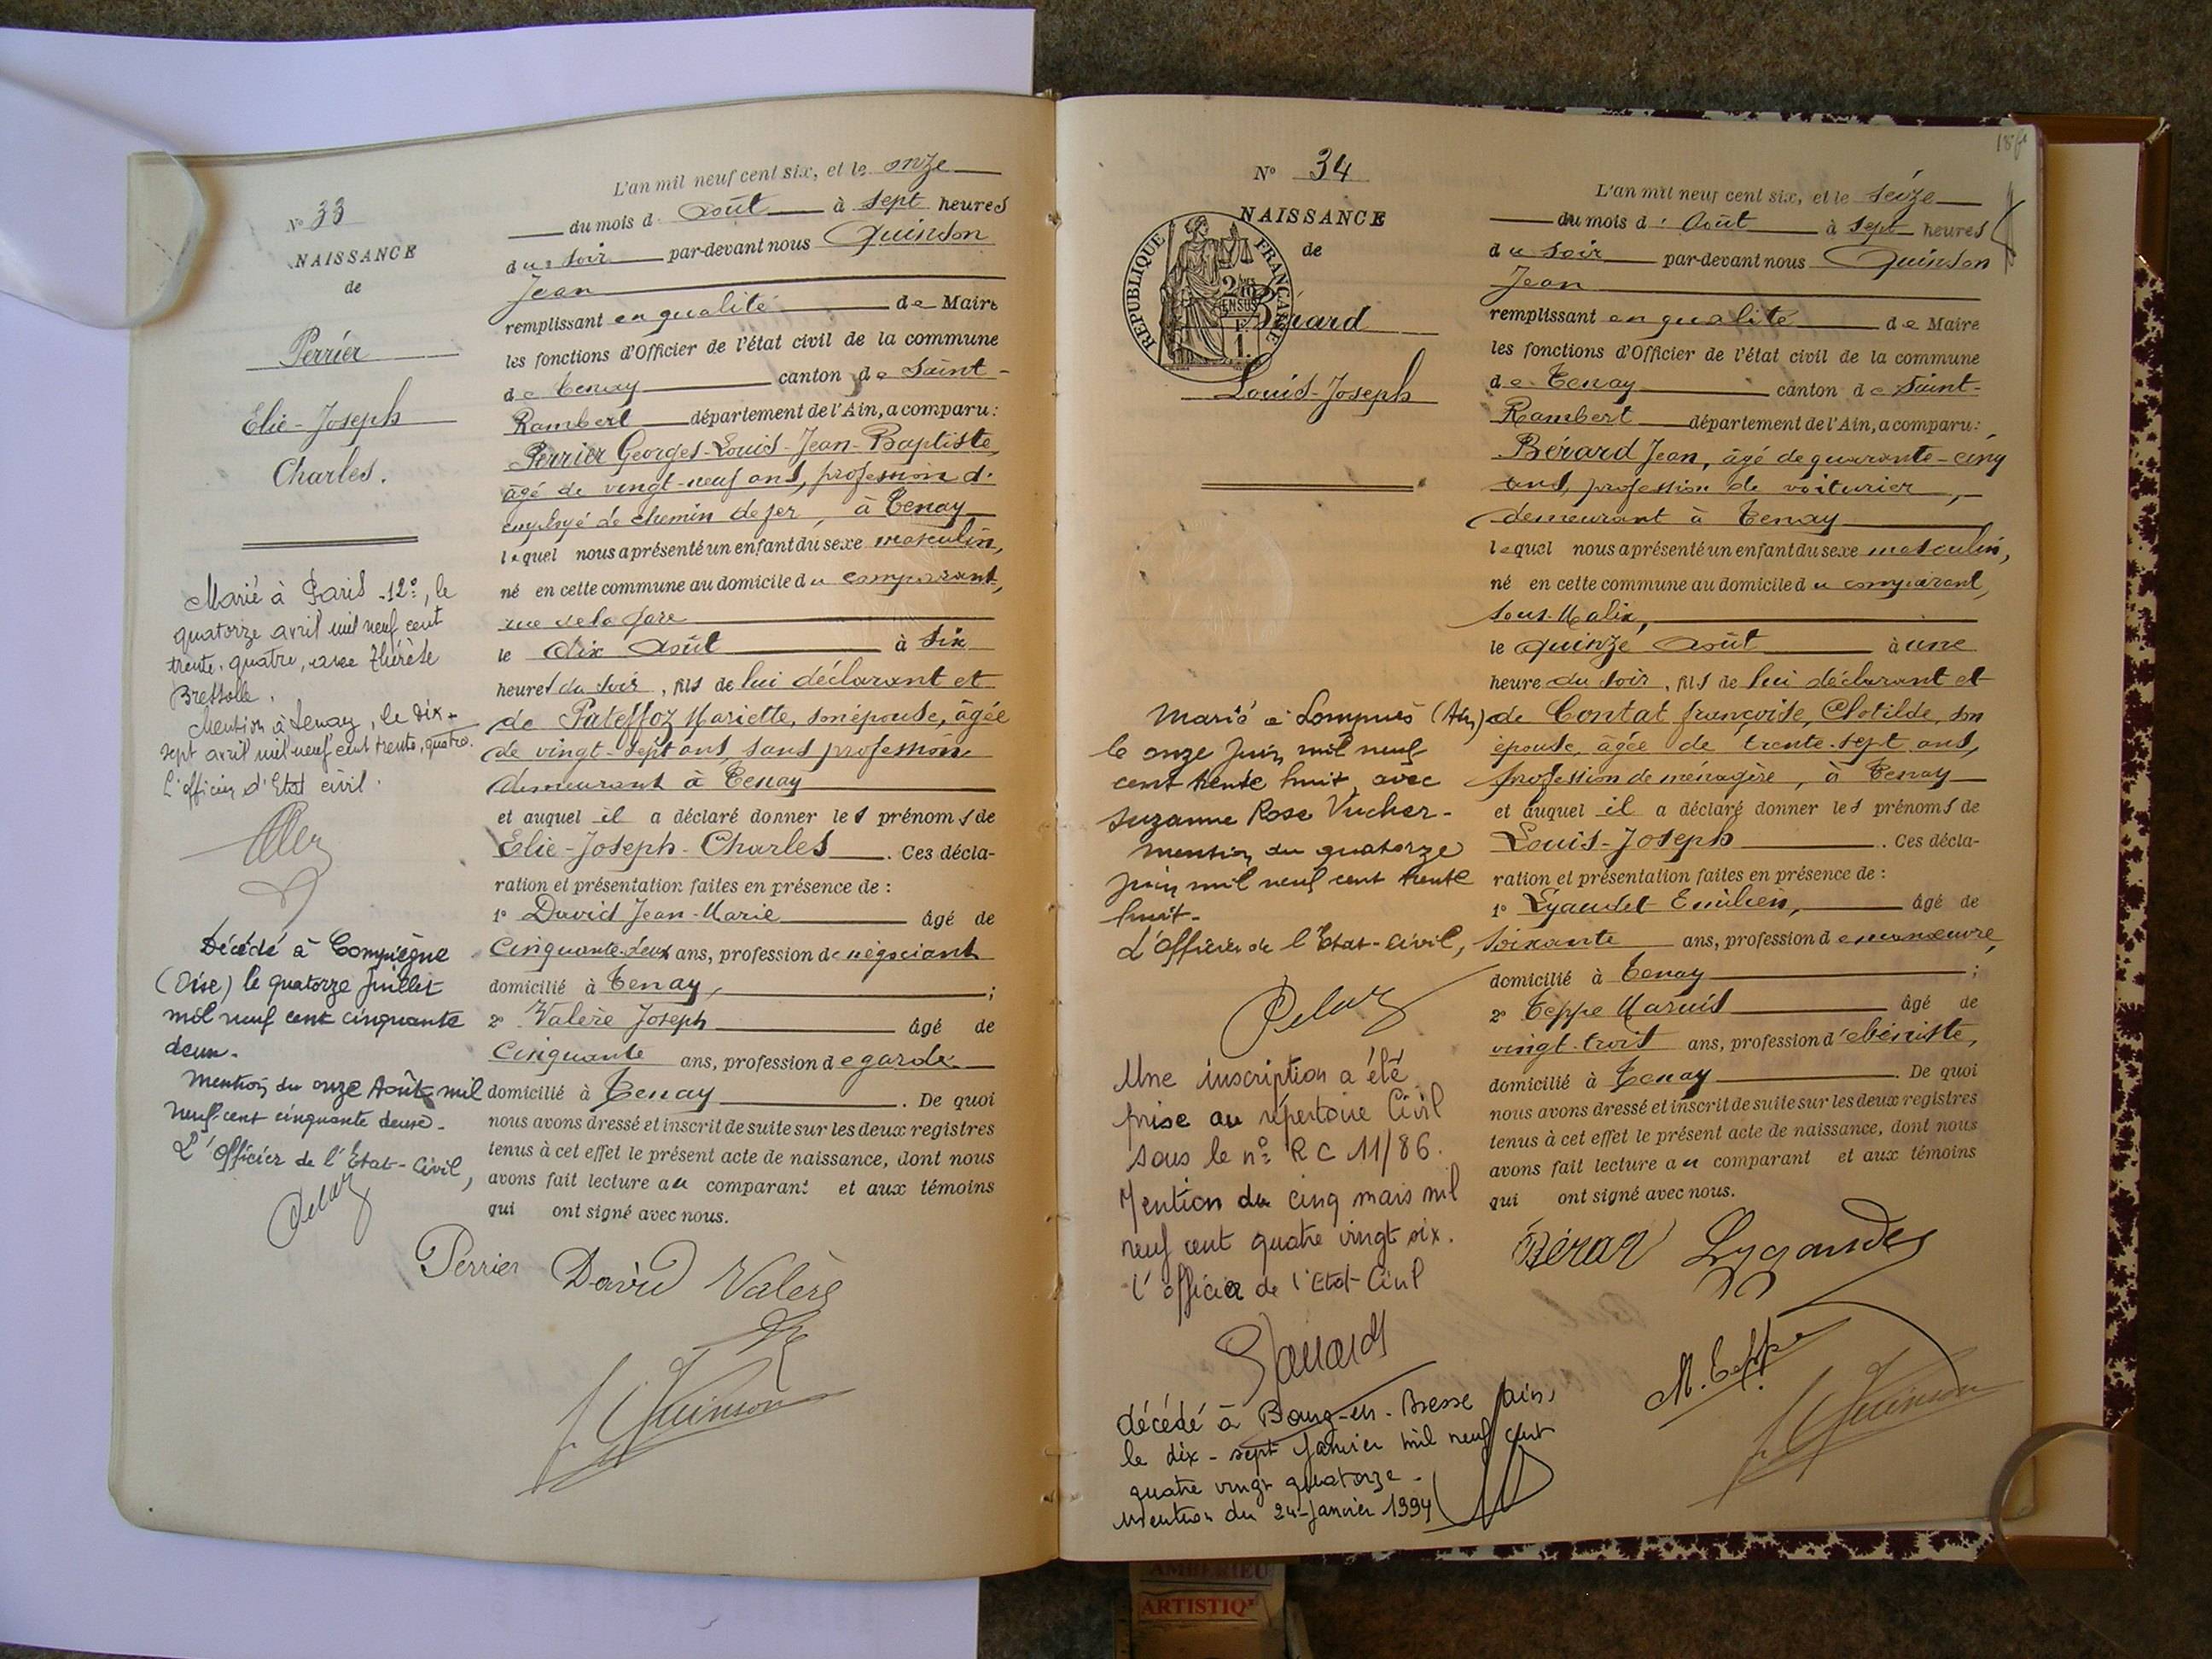 N° 33
NAISSANCE
de
Perrier
Elie-Joseph
Charles.
Marié à Paris -12e, le
quatorze avril mil neuf cent
trente-quatre, avec Thérèse
Bressolle.
Mention à Tenay, le dix-
sept avril mil neuf cent trente-quatre.
L'officier d'Etat civil.
Décédé à Compiègne
(Oise) le quatorze juillet
mil neuf cent cinquante
deux.
Mention du onze Août mil
neuf cent cinquante deux.
L'Officier de l'Etat-Civil,
L'an mil neuf cent six, et le onze
du mois d'août à sept heures
du soir par-devant nous Quinson
Jean
remplissant en qualité de Maire
les fonctions d'Officier de l'état civil de la commune
de Tenay canton de Saint-
Rambert département de l'Ain, a comparu:
Perrier Georges-Louis-Jean-Baptiste,
âgé de vingt-neuf ans, profession d'
employé de chemin de fer, à Tenay
lequel nous a présenté un enfant du sexe masculin,
né en cette commune au domicile du comparant,
rue de la gare
le dix août à six
heures du soir, fils de lui déclarant et
de Pateffoz Mariette, son épouse, âgée
de vingt-sept ans, sans profession
demeurant à Tenay
et auquel il a déclaré donner les prénoms de
Elie-Joseph-Charles. Ces décla-
ration et présentation faites en présence de :
1° David Jean-Marie âgé de
Cinquante-deux ans, profession de négociant
domicilié à Tenay, ;
2° Valère Joseph âgé de
Cinquante ans, profession de garde
domicilié à Tenay. De quoi
nous avons dressé et inscrit de suite sur les deux registres
tenus à cet effet le présent acte de naissance, dont nous
avons fait lecture au comparant et aux témoins
qui ont signé avec nous.
Perrier David Valère
J. Quinson
N° 34
NAISSANCE
de
REPUBLIQUE FRANÇAISE
Bérard
Louis-Joseph
Marié à Lompnès (Ain)
le onze Juin mil neuf
cent trente huit, avec
Suzanne Rose Vucher.
Mention du quatorze
juin mil neuf cent trente
huit.
L'Officier de l'Etat-Civil,
Une inscription a été
prise au répertoire Civil
sous le n° RC 11/86.
Mention du cinq mars mil
neuf cent quatre vingt six.
l'officier de l'Etat-Civil
décédé à Bourg-en-Bresse (Ain)
le dix-sept Janvier mil neuf cent
quatre vingt quatorze -
Mention du 24 Janvier 1994
L'an mil neuf cent six, et le seize
du mois d'Août à sept heures
du soir par-devant nous Quinson
Jean
remplissant en qualité de Maire
les fonctions d'Officier de l'état civil de la commune
de Tenay canton de Saint-
Rambert département de l'Ain, a comparu:
Bérard Jean, âgé de quarante-cinq
ans, profession de voiturier,
demeurant à Tenay
lequel nous a présenté un enfant du sexe masculin,
né en cette commune au domicile du comparant,
sous-Malix,
le quinze août à une
heure du soir, fils de lui déclarant et
de Contat françoise, Clotilde, son
épouse, âgée de trente-sept ans,
profession de ménagère, à Tenay
et auquel il a déclaré donner les prénoms de
Louis-Joseph. Ces décla-
ration et présentation faites en présence de :
1° Lygaudet Emilien, âgé de
soixante ans, profession de manœuvre,
domicilié à Tenay ;
2° Teppe Marius âgé de
vingt-trois ans, profession d'ébéniste,
domicilié à Tenay. De quoi
nous avons dressé et inscrit de suite sur les deux registres
tenus à cet effet le présent acte de naissance, dont nous
avons fait lecture au comparant et aux témoins
qui ont signé avec nous.
M. Teppe
J. Quinson
AMBERIEU
ARTISTIQ